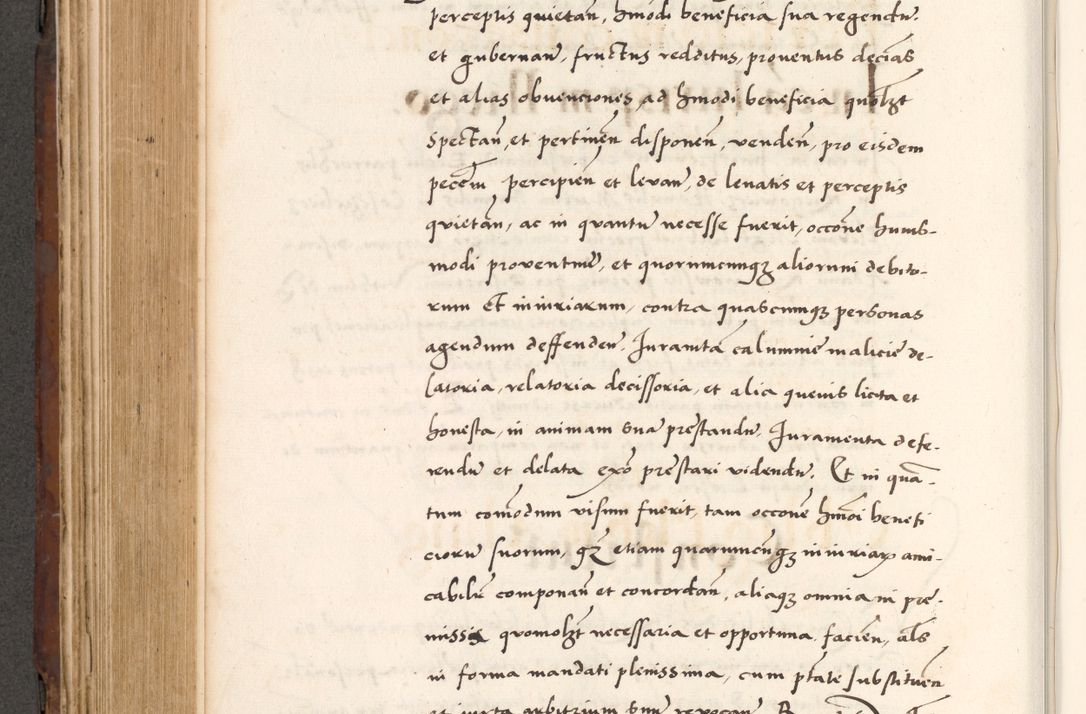 perceptis quietan̄, hmōdi beneficia sua regendū
et gubernan̄, fructus redditus, proventus decīas
et alias obvenciones, ad hmodi beneficia quōlꝫt
Spectan̄, et pertinēn disponēn̄, vendēn̄, pro eisdem
peccēm percipien̄ et levan̄, de levatis et perceptis
quietān̄, ac in quantū necesse fuerit, occōne huius-
modi proventuū, et quorumcunqꝫ aliorum debito-
rum Et iniuriarum, contra quascumqꝫ personas
agendum deffendēn̄. Iuramtā calumnie malicie de-
latoria, relatoria decissoria, et alia quevis licita et
honesta, in animam sua prestandū, Iuramenta defe-
rendū et delata exō prestari videndū. Et in quā-
tum comōdum visum fuerit, tam occōne hmōi benefi
ciorū suorum, qꝫ etiam quarumcunqꝫ iniuriaꝝ ami-
cabilr̄ componān̄ et concordan̄, aliaqꝫ omnia in pre-
missis quomolꝫt necessaria et opportuna facien̄, als̄
in forma mandati plenissima, cum ptāte substituēn̄
et iuxta arbitrium suum revocan̄